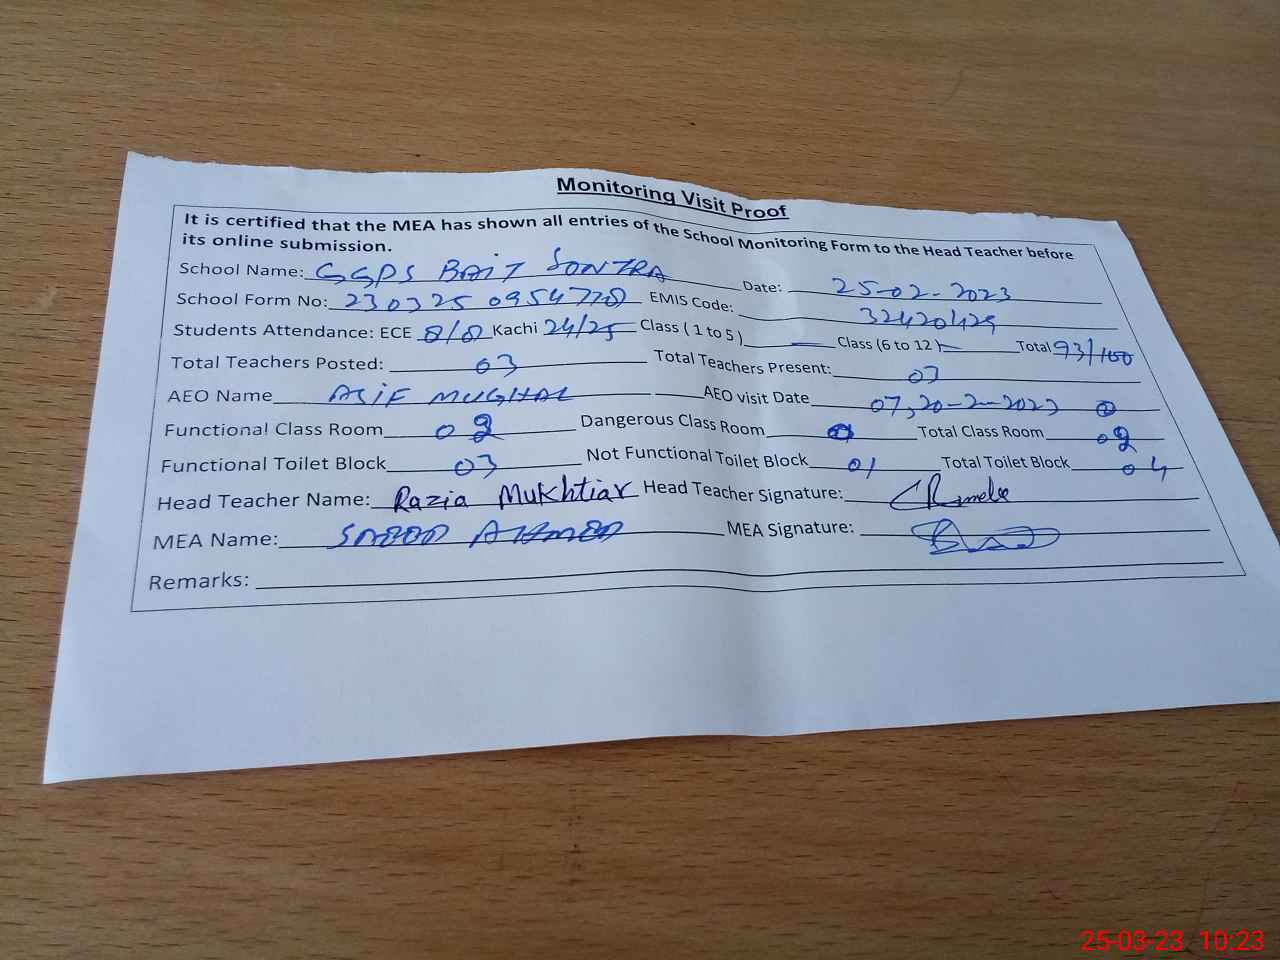 Monitoring Visit Proof
It is certified that the MEA has shown all entries of the School Monitoring Form to the Head Teacher before
its online submission.
School Name: GGPS BAIT SONTRA Date: 25-02-2023
School Form No: 230325 0954728 EMIS Code: 32420429
Students Attendance: ECE 8/8 Kachi 24/25 Class ( 1 to 5 ) Class (6 to 12 ) Total 93/100
Total Teachers Posted: 03 Total Teachers Present: 03
AEO Name ASIF MUGHAL AEO visit Date 07,20-2-2023
Functional Class Room 02 Dangerous Class Room 0 Total Class Room 02
Functional Toilet Block 03 Not Functional Toilet Block 01 Total Toilet Block 04
Head Teacher Name: Razia Mukhtiar Head Teacher Signature:
MEA Name: AHMED MEA Signature:
Remarks:
25-03-23 10:23